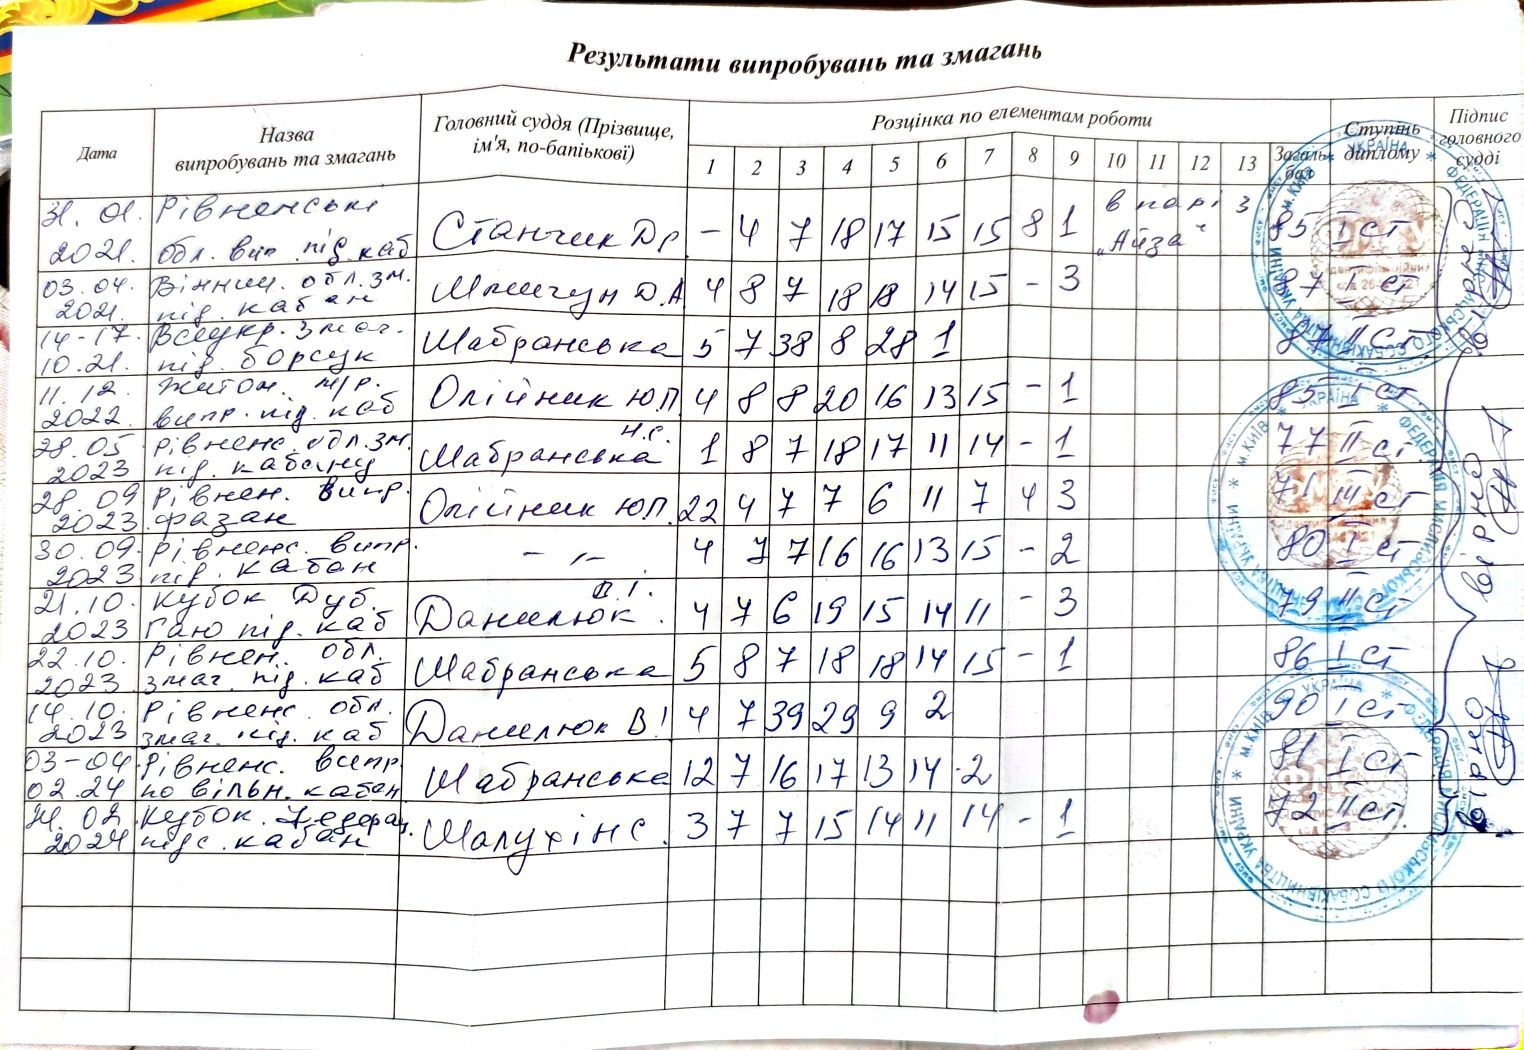 Результати випробувань та змагань
Дата Назва випробувань та змагань Головний суддя (Прізвище, ім'я, по-батькові) Розцінка по елементам роботи Ступінь диплому Підпис головного судді
1 2 3 4 5 6 7 8 9 10 11 12 13 Загаль. бал
31.01. Рівненські в парі з
2021. обл. вип. під. каб Станчик Др - 4 7 18 17 15 15 8 1 „Айза" 85 I ст
03.04. Вінниц. обл. зм.
2021. під. кабан Д.А 4 8 7 18 18 14 15 - 3 87 I ст
14-17. Всеукр. змаг.
10.21. під. борсук Шабранська 5 7 38 8 28 1 87 II ст
11.12. Житом. м/р.
2022. випр. під. каб Олійник Ю.П 4 8 8 20 16 13 15 - 1 85 I ст
28.05 Рівненс. обл. зм. Н.С.
2023 під. кабану Шабранська 1 8 7 18 17 11 14 - 1 77 II ст
28.09 Рівнен. випр.
2023 фазан Олійник Ю.П. 22 4 7 7 6 11 7 4 3 71 III ст
30.09 Рівненс. випр.
2023 під. кабан - „ - 4 7 7 16 16 13 15 - 2 80 I ст
21.10. Кубок Дуб. В.І.
2023 Гаю під. каб Данилюк. 4 7 6 19 15 14 11 - 3 79 II ст
22.10. Рівнен. обл.
2023 змаг. під. каб Шабранська 5 8 7 18 18 14 15 - 1 86 I ст
14.10. Рівненс. обл.
2023 змаг. під. каб Данилюк В! 4 7 39 29 9 2 90 I ст
03-04 Рівненс. випр.
02.24 по вільн. кабан Шабранська 12 7 16 17 13 14 2 81 I ст.
02. Кубок Федерац.
2024 підс. кабан 3 7 7 15 14 11 14 - 1 72 II ст.
Вірно
Вірно
Вірно
УКРАЇНА * ФЕДЕРАЦІЯ МИСЛИВСЬКОГО СОБАКІВНИЦТВА УКРАЇНИ * м.КИЇВ *
УКРАЇНА * ФЕДЕРАЦІЯ МИСЛИВСЬКОГО СОБАКІВНИЦТВА УКРАЇНИ * м.КИЇВ *
УКРАЇНА * ФЕДЕРАЦІЯ МИСЛИВСЬКОГО СОБАКІВНИЦТВА УКРАЇНИ * м.КИЇВ *